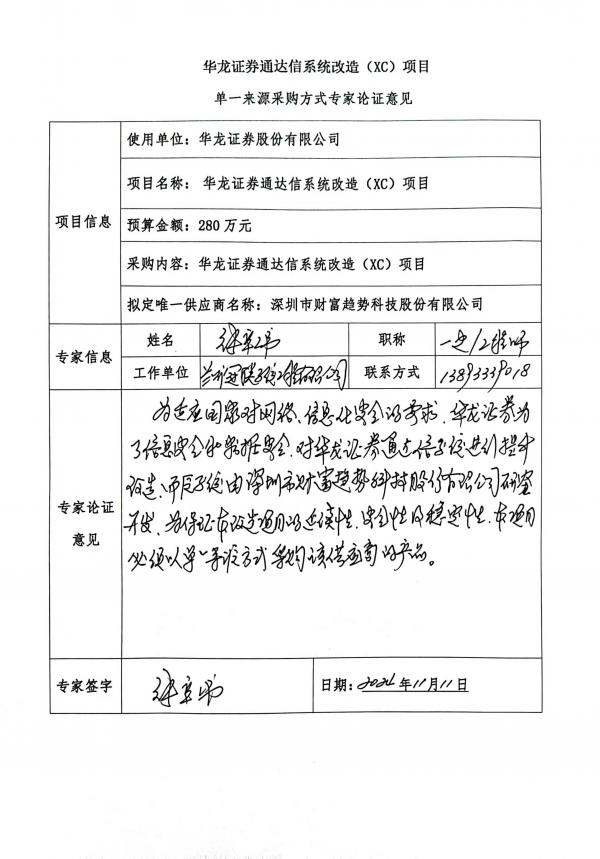 华龙证券通达信系统改造（XC）项目
单一来源采购方式专家论证意见
项目信息
使用单位：华龙证券股份有限公司
项目名称： 华龙证券通达信系统改造（XC）项目
预算金额：280 万元
采购内容：华龙证券通达信系统改造（XC）项目
拟定唯一供应商名称：深圳市财富趋势科技股份有限公司
专家信息
姓名
职称 工程师
工作单位 有限公司
联系方式 13893339018
专家论证
意见
为适应国家对网络、信息化安全的要求，华龙证券为
了信息安全和数据安全，对华龙证券通达信系统进行提升
改造，系统由深圳市财富趋势科技股份有限公司研究
开发，为保证本改造项目的连续性、安全性及稳定性，本项目
必须以单一来源方式采购该供应商的产品。
专家签字
日期：2024年11月11日